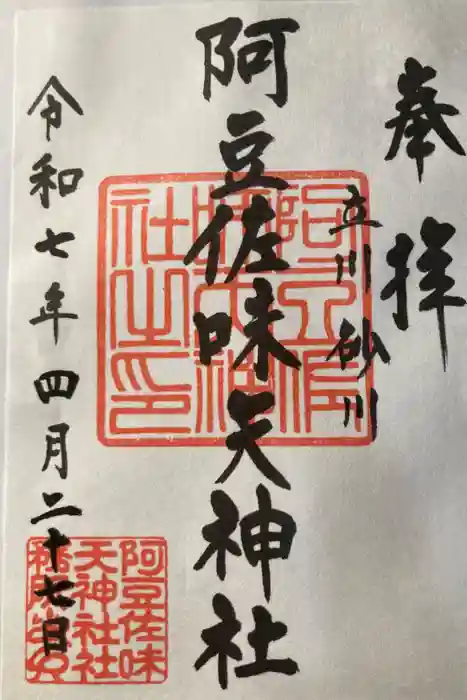 奉拝
立川砂川
阿豆佐味天神社
令和七年四月二十七日
阿豆佐味
天神社社
務所之印